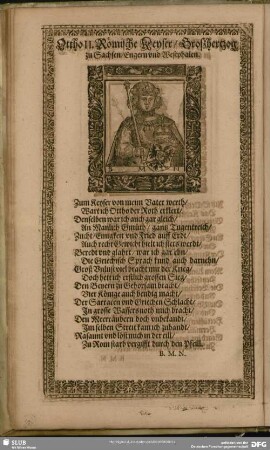 Ottho II. Römische Keyser / Großhertzog
zu Sachsen / Engern vnd Westphalen.
Zum Keyser von mein Vater werth /
Ward ich Ottho der Roth erklert /
Denselben war ich auch gar gleich /
An Manlich Gmüth / gantz Tugentreich /
Zucht / Einigkeit vnd Fried auff Erd /
Auch recht Gewicht hielt ich stets werth /
Beredt vnd glahrt / war ich gar
Die Griechisch Sprach kund auch
Groß Vnlust viel bracht mir der Krieg /
Doch bhielt ich endlich großen Sieg /
Den Beyern zu Gehorsam bracht /
Vier Könge auch bendig macht /
Der Sarracen vnd Griechen Schlacht /
In grosse Wassersnoth mich bracht /
Den Meerräubern doch vnbekandt /
Im selben Streit kam ich zuhandt /
Ransamt vnd löst mich in der eil /
Zu Rom starb vergifft durch den Pfeill.
B. M. N.
SLUB